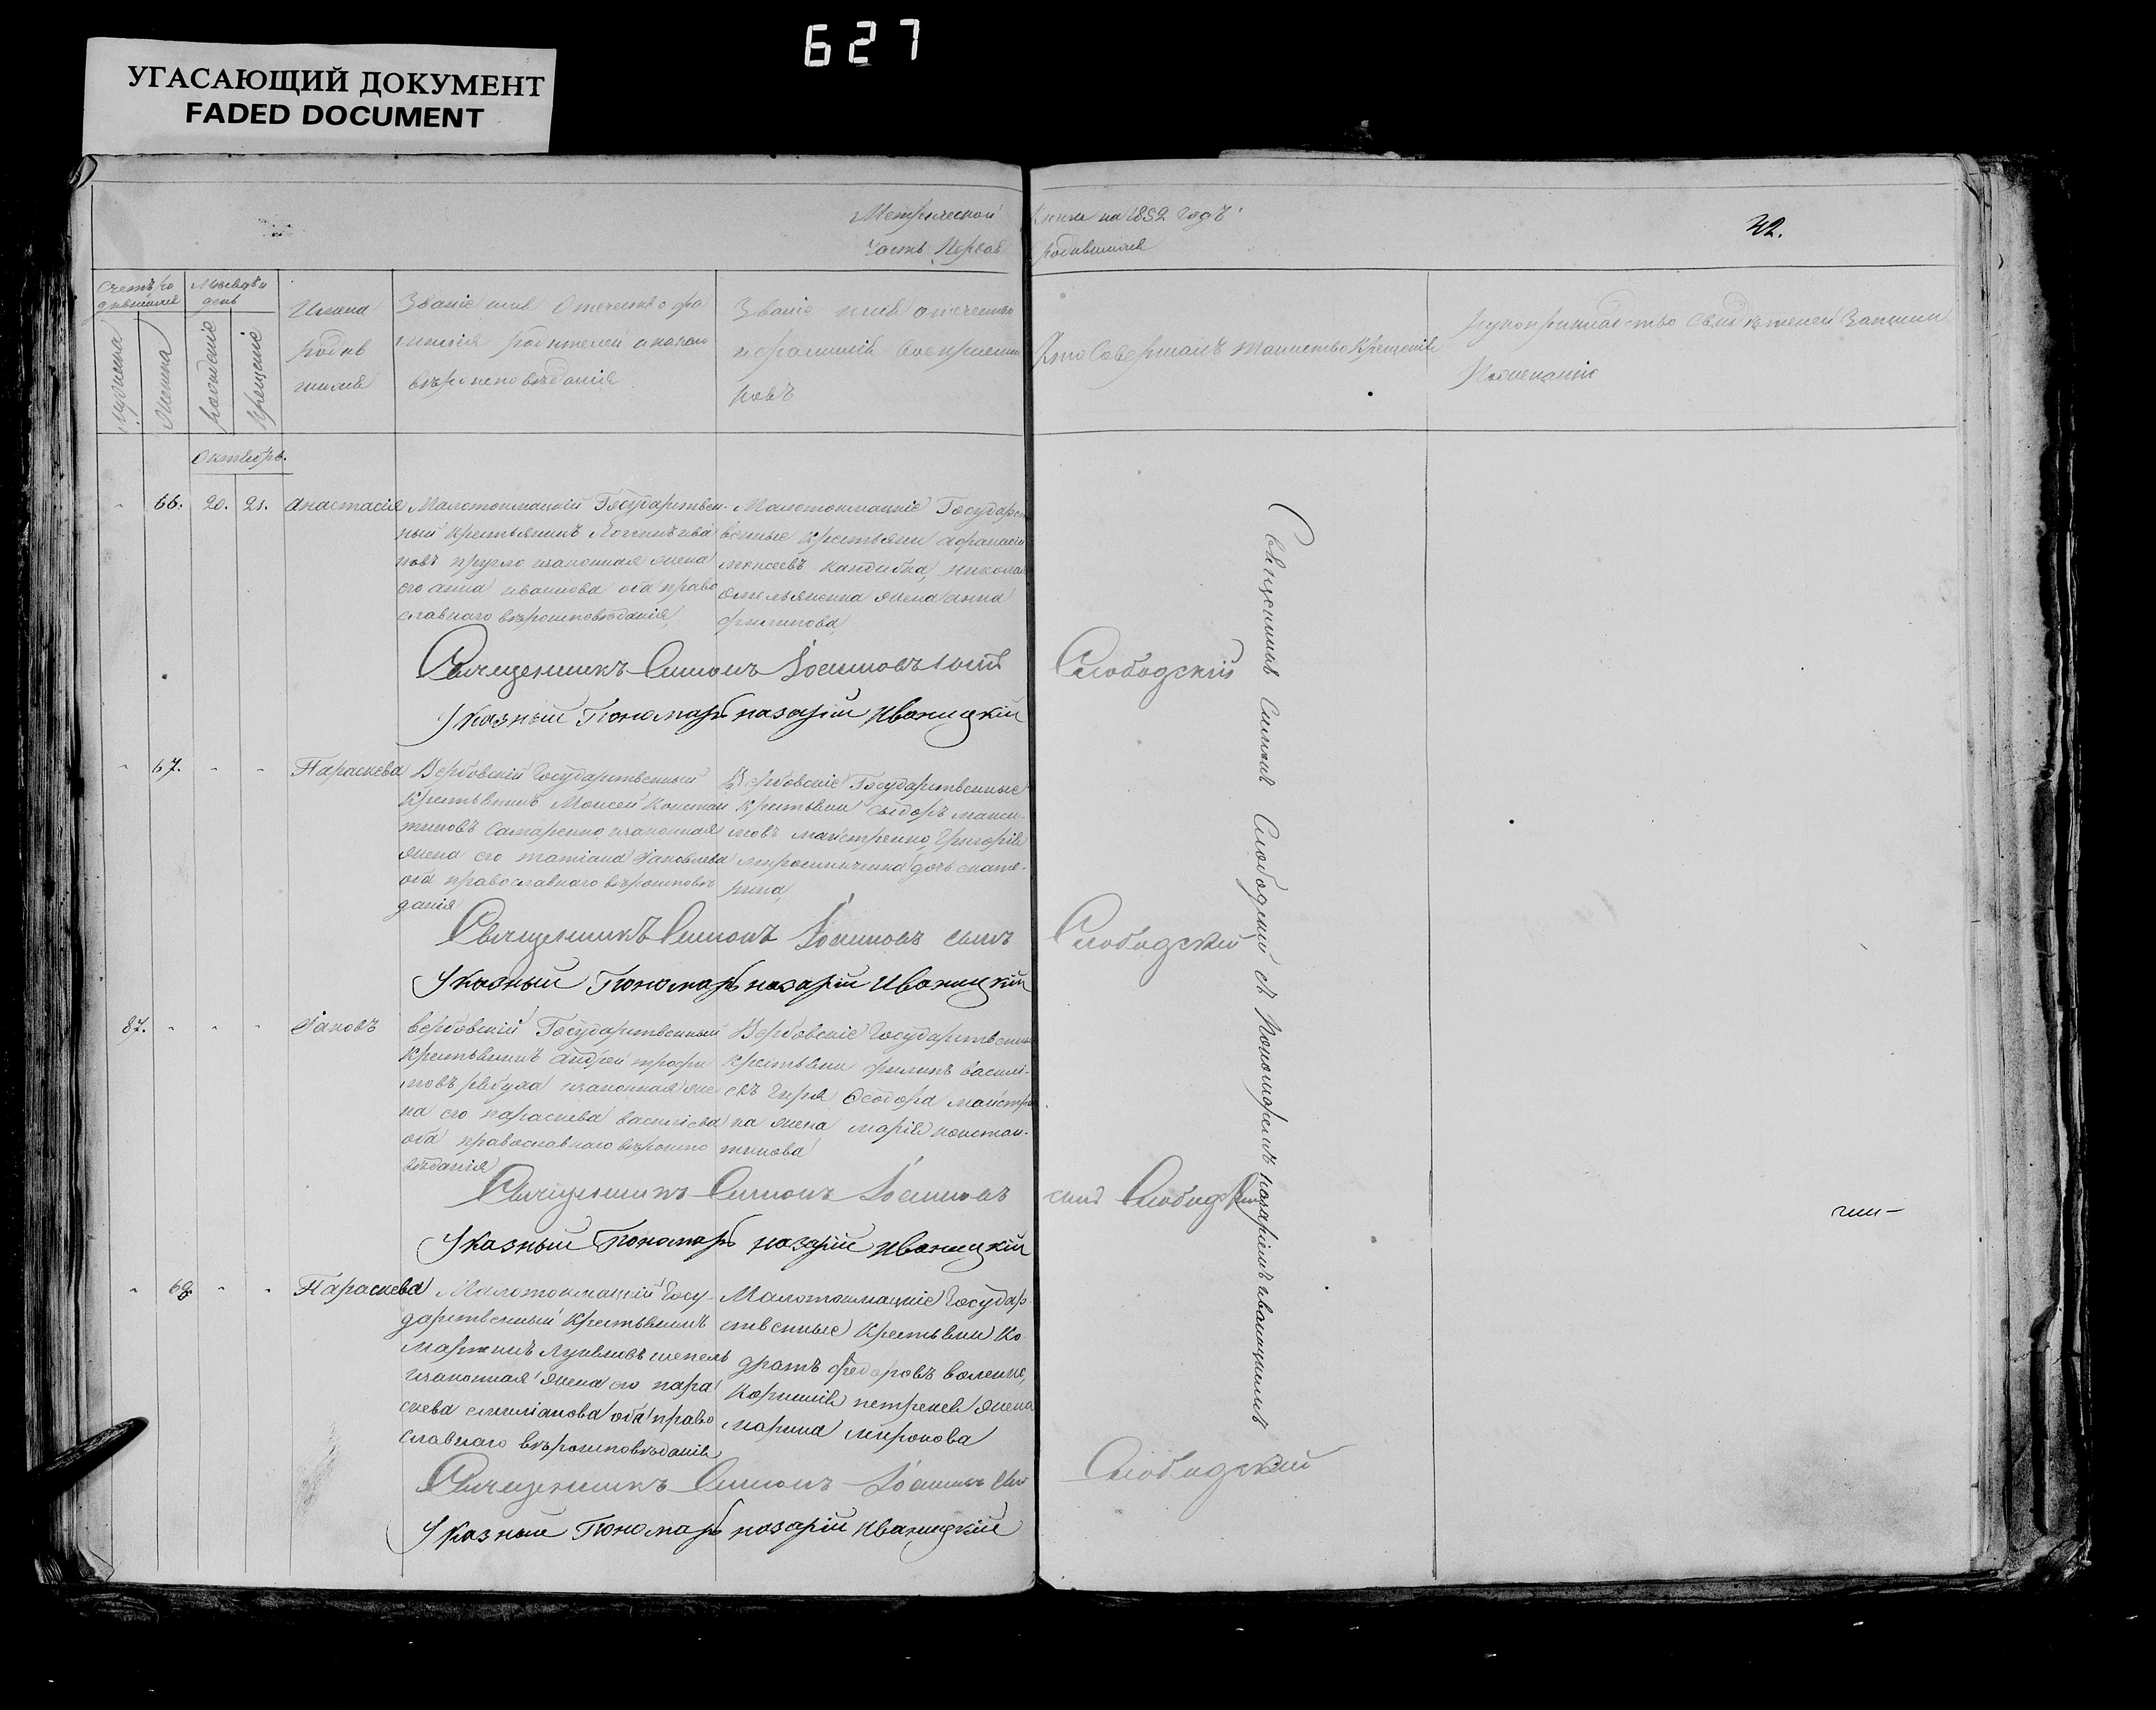 627
УГАСАЮЩИЙ ДОКУМЕНТ
FADED DOCUMENT
Метрической Книги на 1852 годъ
42.
Часть Первая родившихся
Счетъ родившихся
Мѣсяцъ и день
мужеска
женска
рожденіе
крещеніе
Имена
родив
шихся
Званіе имя Отечество фа
милія родителей и какого
вѣроисповѣданія
Званіе имя отечество
и фамилія Воспріемни
ковъ
Кто Совершалъ таинство Крещенія
рукоприкладство свидѣтелей Записи
Октябрь.
66. 20. 21. Анастасія
Малотокмацкій Государствен-
ный крестьянинъ Ива
новъ кругло изаконная жена
его анна иванова оба право
славнаго вѣроисповѣданія,
Малотокмацкіе Государст
венные крестьяни афанасій
моисеевъ кандиба, николая
омельяненка жена анна
филипова,
Священникъ Симонъ Іоанновъ сынъ Слободскій
Указный Пономарь назарій Иваницкій
67. Параскева
Вербовскій Государственный
Крестьянинъ Моисей Констан
тиновъ Самаренко изаконная
жена его татіана Яковлева
оба православнаго вѣроисповѣ
данія
Вербовскіе Государственные
Крестьяни сыдоръ макси-
мовъ майстренко, Григорія
мирошниченка дочь екате-
рина,
Священникъ Симонъ Іоанновъ сынъ Слободскій
Указный Пономарь назарій Иваницкій
87. Іаковъ
вербовскій Государственный
Крестьянинъ андрей трофи
мовъ рябуха изаконная же
на его параскева василіева
оба православнаго вѣроиспо
вѣданія
Вербовскіе Государственн
Крестьяни филипъ василі-
евъ Гиря Ѳеодора майстрен
ка жена марія констан-
тинова
Священникъ Симонъ Іоанновъ сынъ Слободскій
Указный Пономарь назарій Иваницкій
68 Параскева
Малотокмацкій Госу-
дарственный Крестьянинъ
мартинъ шепель
изаконная жена его пара
скева емиліанова оба право
славнаго вѣроисповѣданія
Малотокмацкіе Государ
ственные Крестьяни Ко
дратъ федоровъ
Корнилія жена
марина миронова
Священникъ Симонъ Іоанновъ сынъ Слободскій
Указный Пономарь назарій Иваницкій
Священникъ Симонъ Слободскій съ Пономаремъ назаріемъ иваницкимъ